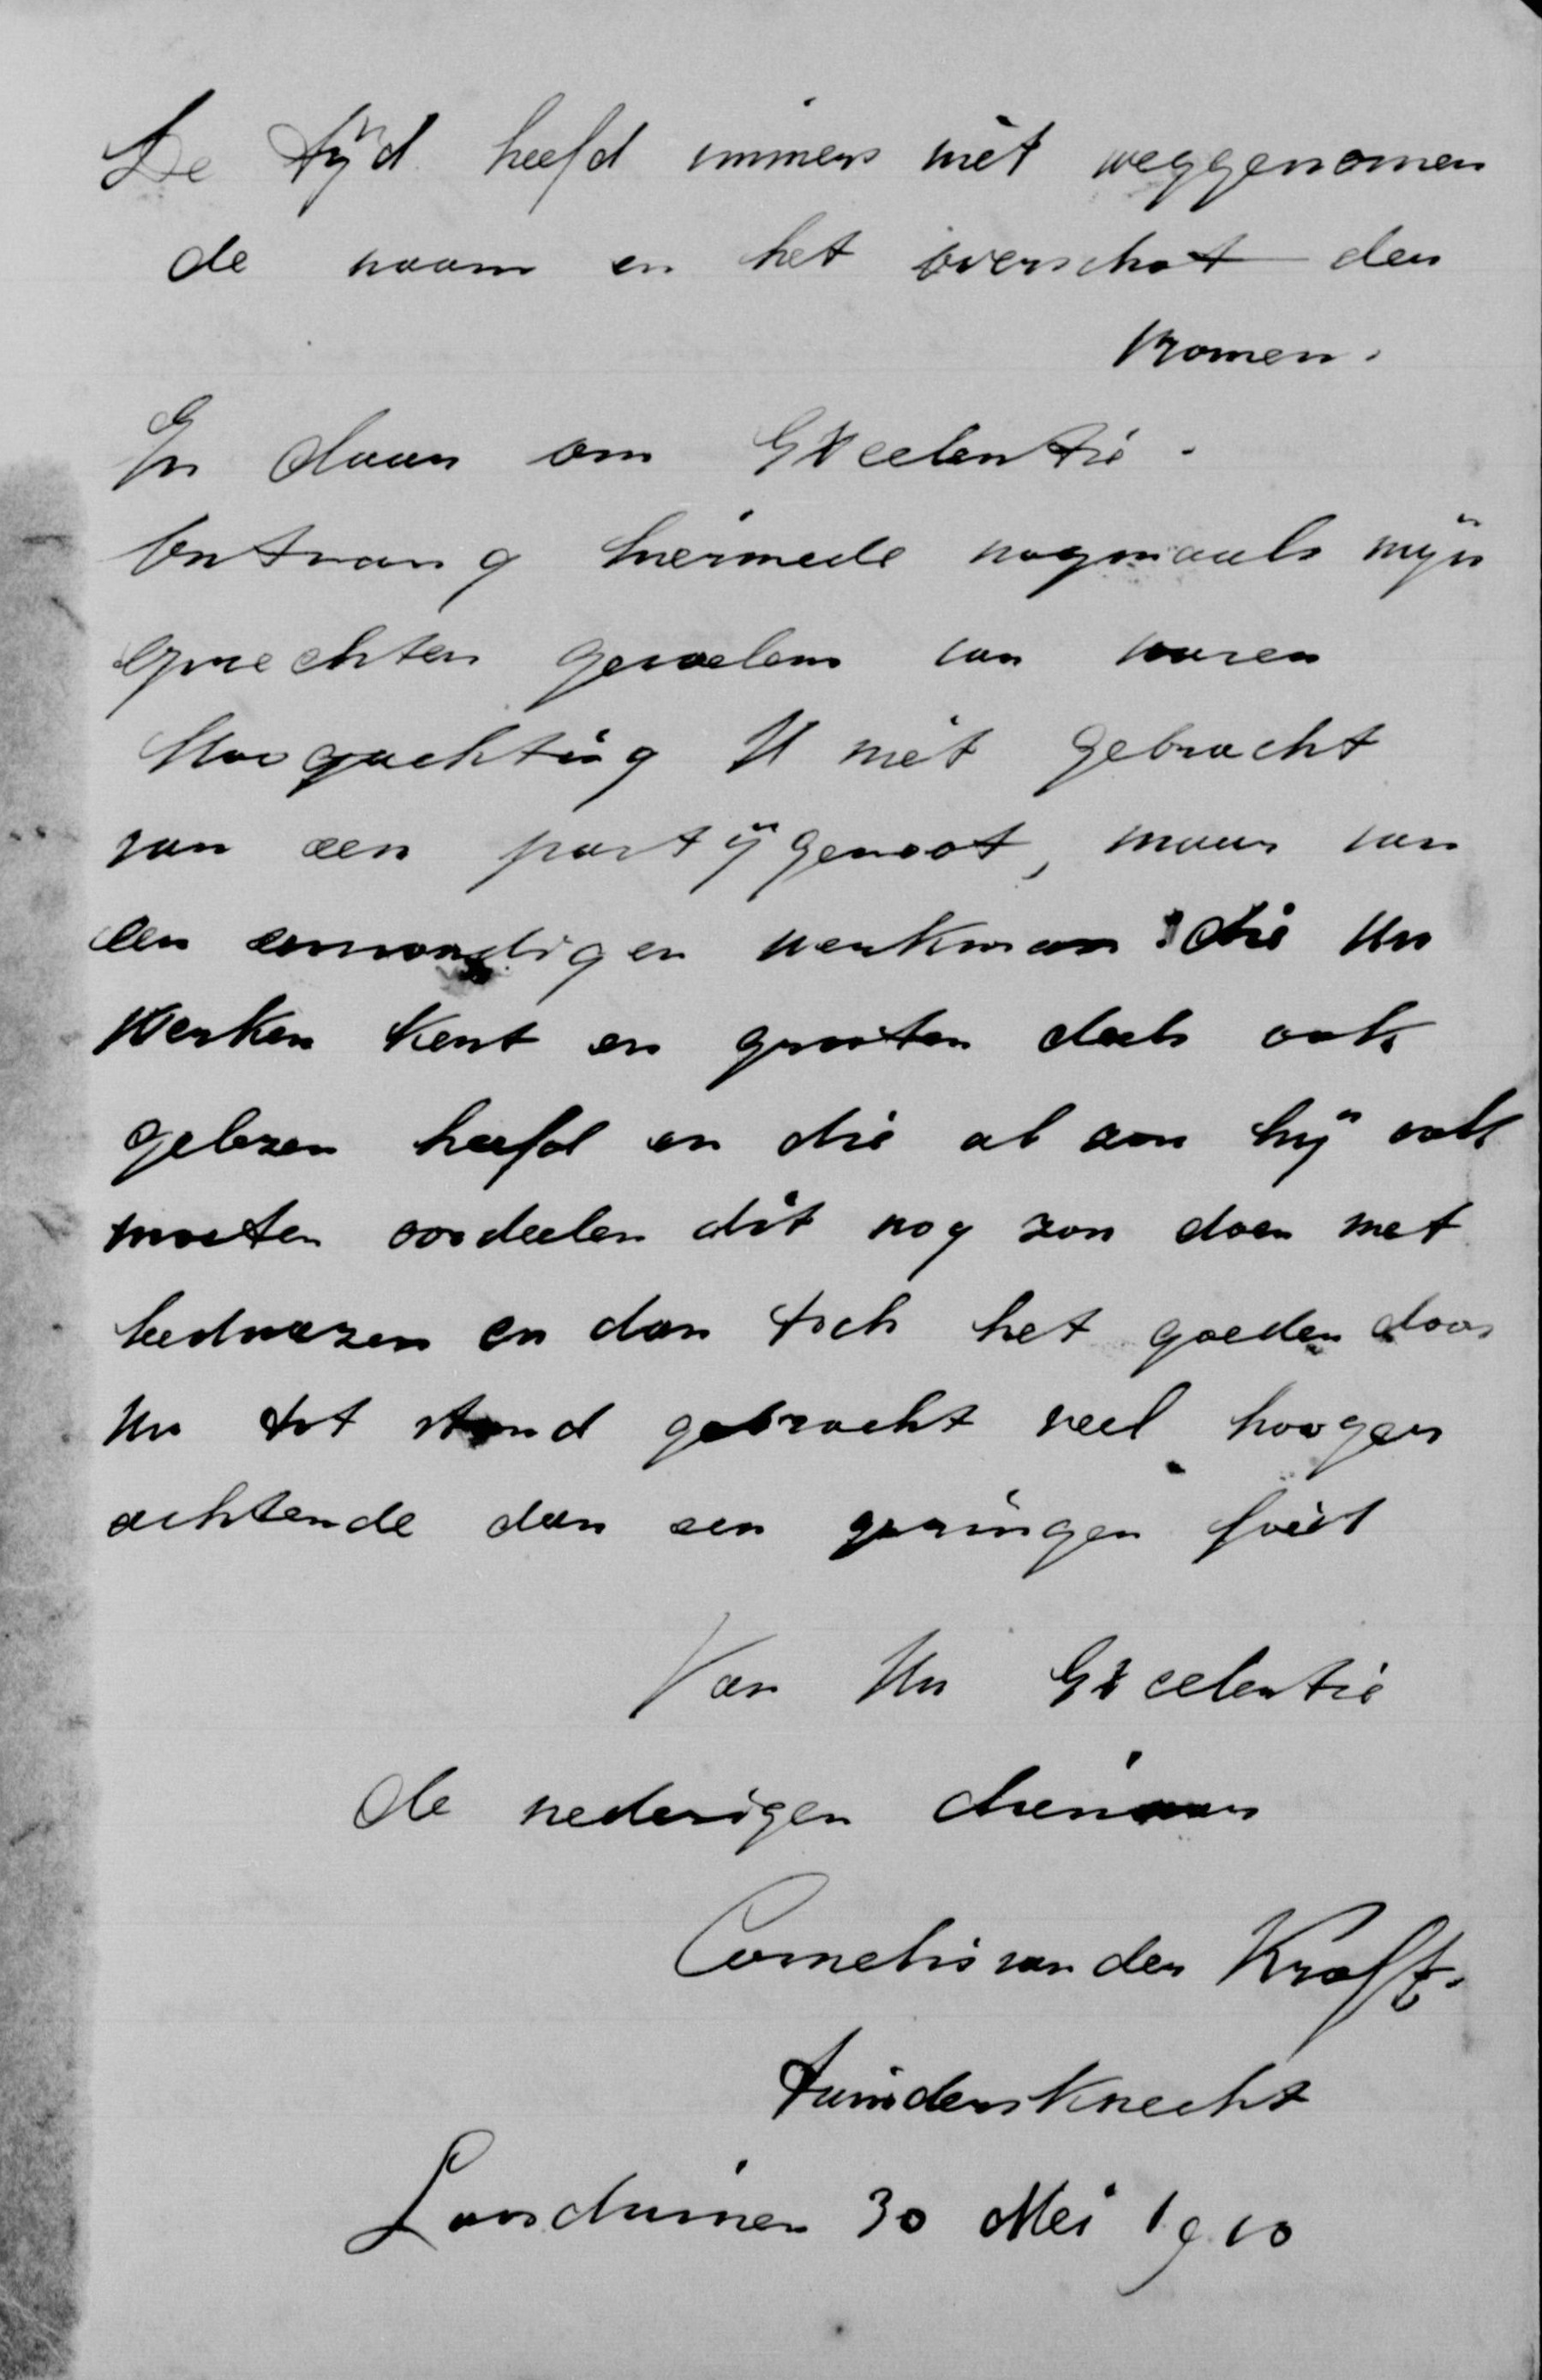 De tijd heefd immers niet weggenomen
de naam en het overschot der
vromen.
En daar om Excelentie.
Ontvang hiermede nogmaals mijn
oprechten gevoelens van waren
Hoogachting U niet gebracht
van een partijgenoot, maar van
een eenvoudigen werkman die Uw
Werken kent en grooten deels ook
gelezen heefd en die al zou hij ook
moeten oordeelen dit nog zou doen met
leedwezen en dan toch het goeden door
Uw tot stand gebracht veel hooger
achtende dan een geringen fout
Van Uw Excelentie
de nederigen dienaar
Cornelis van der Kraft.
tuindersknecht
Loosduinen 30 Mei 1910